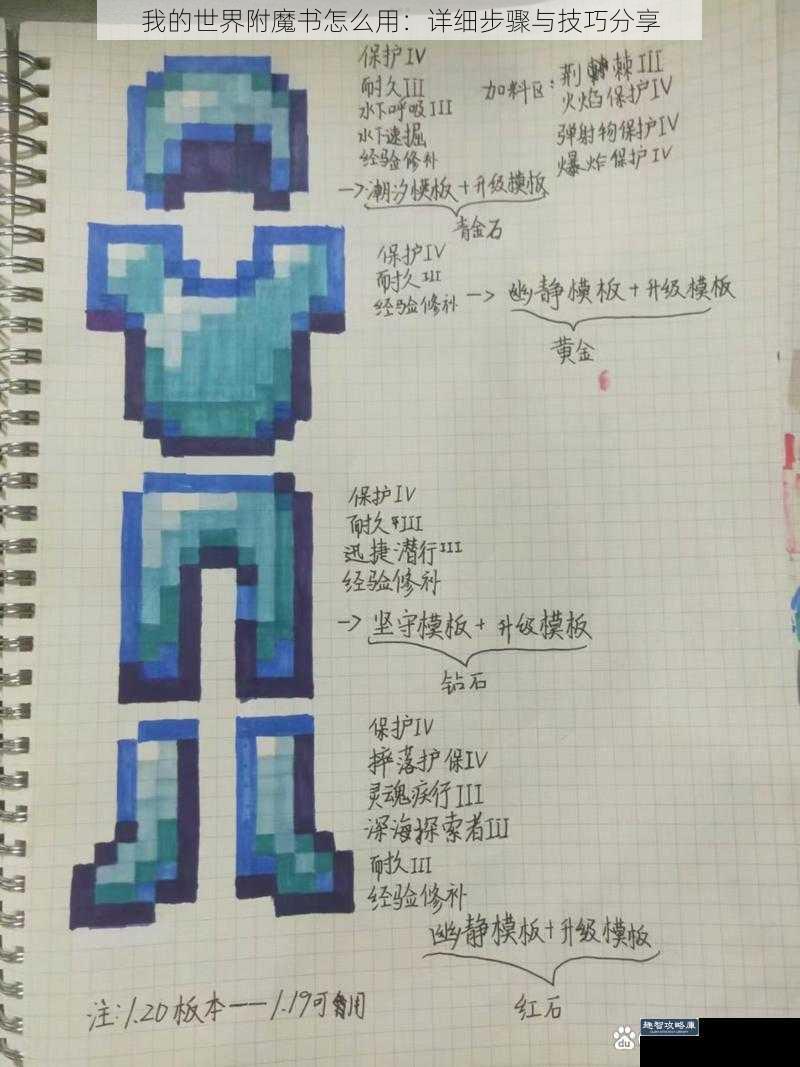 我的世界附魔书怎么用：详细步骤与技巧分享
保护IV
耐久III
水下呼吸III
水下速掘
经验修补
加料区：荆棘III
火焰保护IV
弹射物保护IV
爆炸保护IV
→潮汐模板+升级模板
青金石
保护IV
耐久III
经验修补 → 幽静模板+升级模板
黄金
保护IV
耐久III
迅捷潜行III
经验修补
→ 坚守模板+升级模板
钻石
保护IV
摔落护保IV
灵魂疾行III
深海探索者III
耐久III
经验修补
幽静模板+升级模板
红石
注：1.20板本——1.19可用
趣智攻略库
du